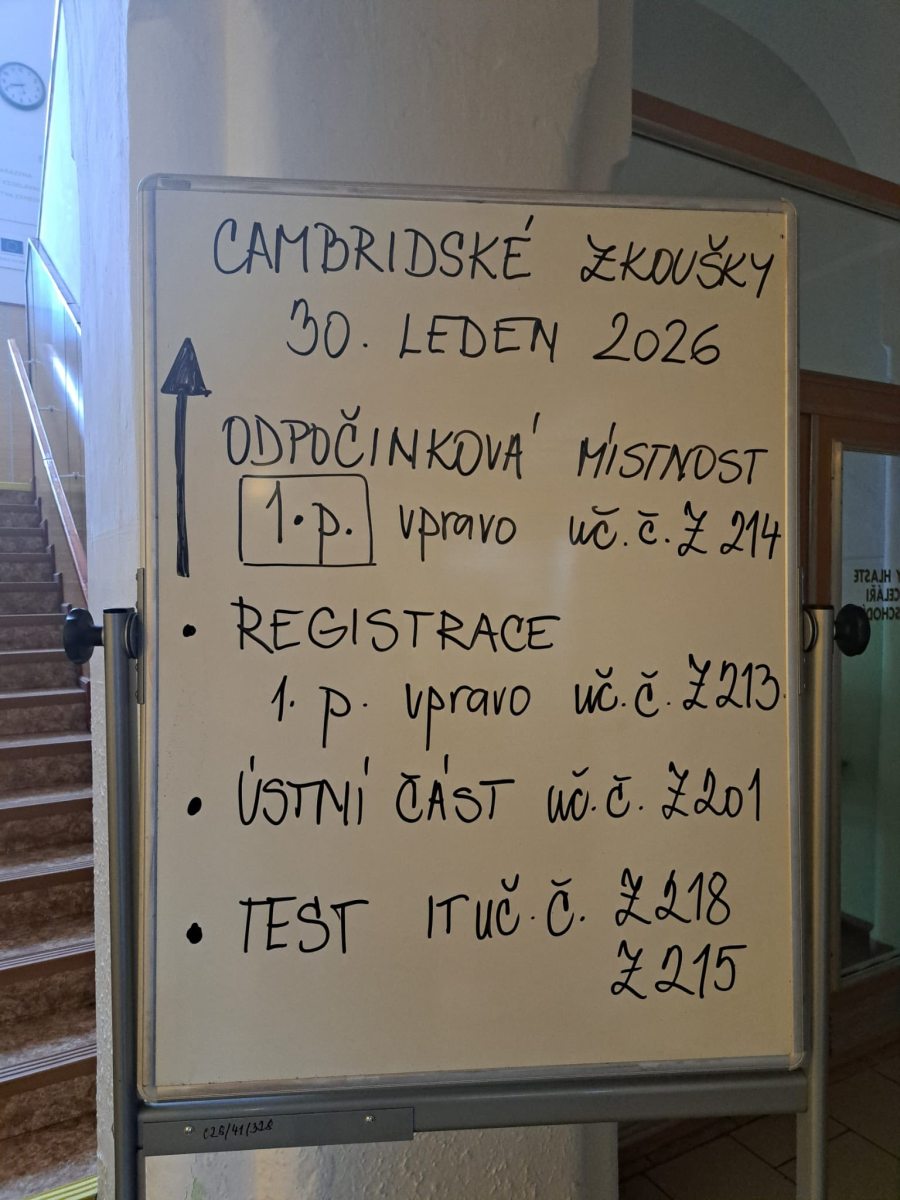 CAMBRIDSKÉ ZKOUŠKY
30. LEDEN 2026
ODPOČINKOVÁ MÍSTNOST
1.p. vpravo uč.č. Z 214
• REGISTRACE
1. p. vpravo uč.č. Z213
• ÚSTNÍ ČÁST uč.č. Z201
• TEST IT uč.č. Z218
Z215
C26/41/328